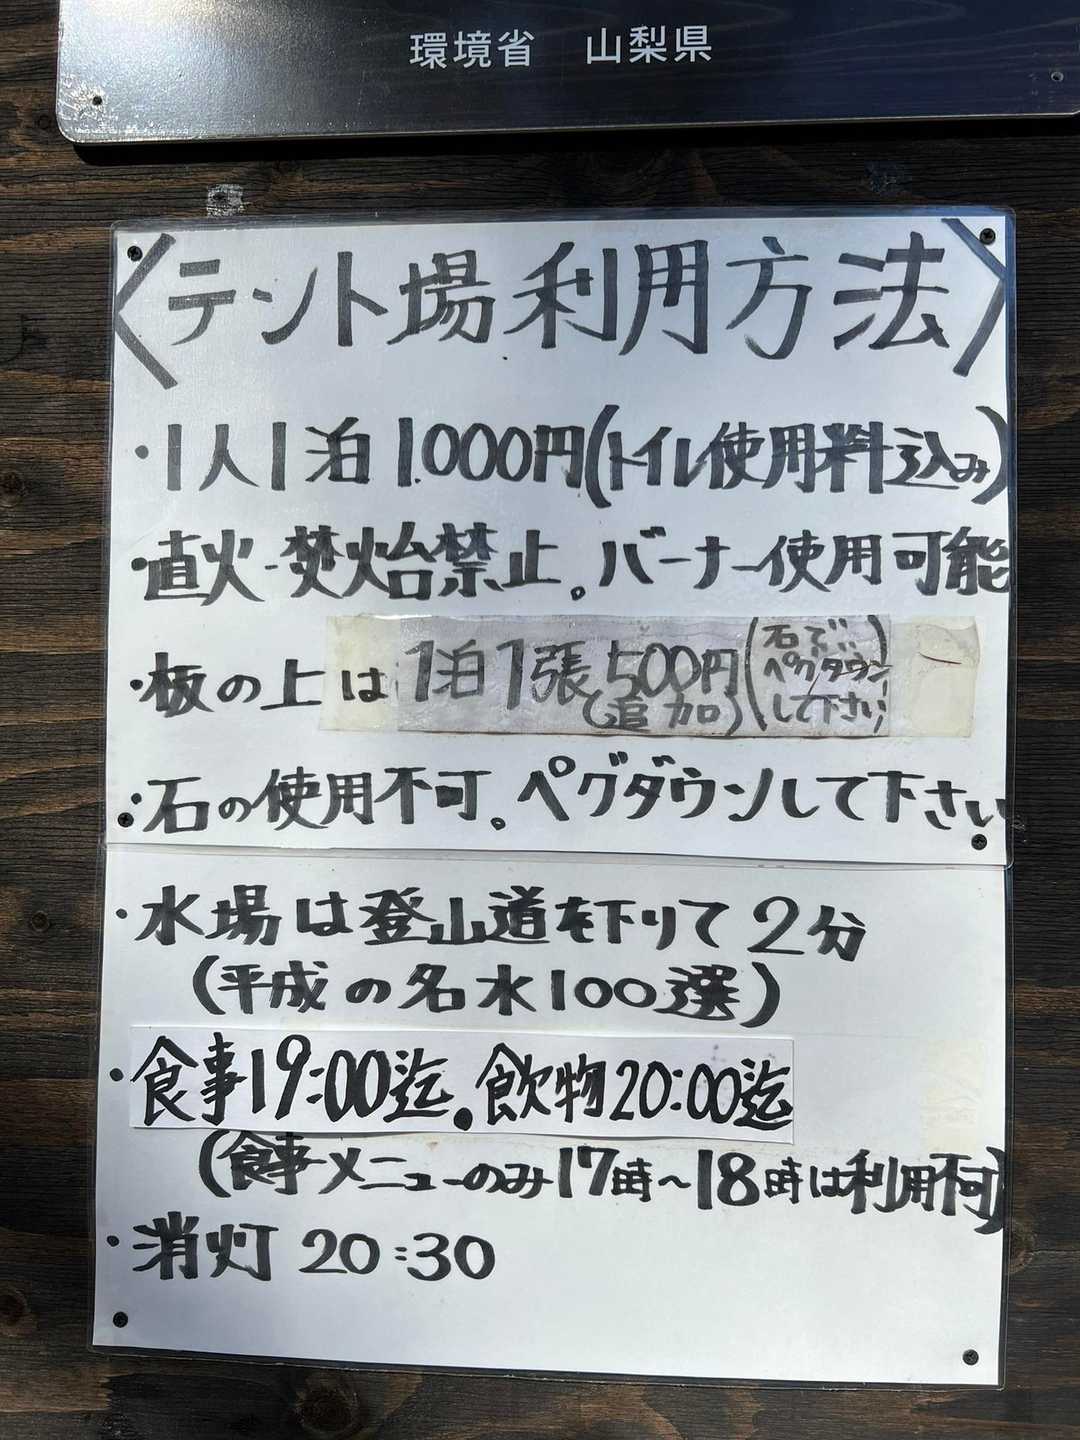 環境省　山梨県
〈テント場利用方法〉
・1人1泊 1.000円(トイレ使用料込み)
・直火・焚火台禁止。バーナー使用可能
・板の上は1泊1張500円(追加)(石でペグダウンして下さい)
・石の使用不可。ペグダウンして下さい
・水場は登山道を下りて2分
(平成の名水100選)
・食事19:00迄。飲物20:00迄
(食事メニューのみ17時～18時は利用不可)
・消灯 20:30